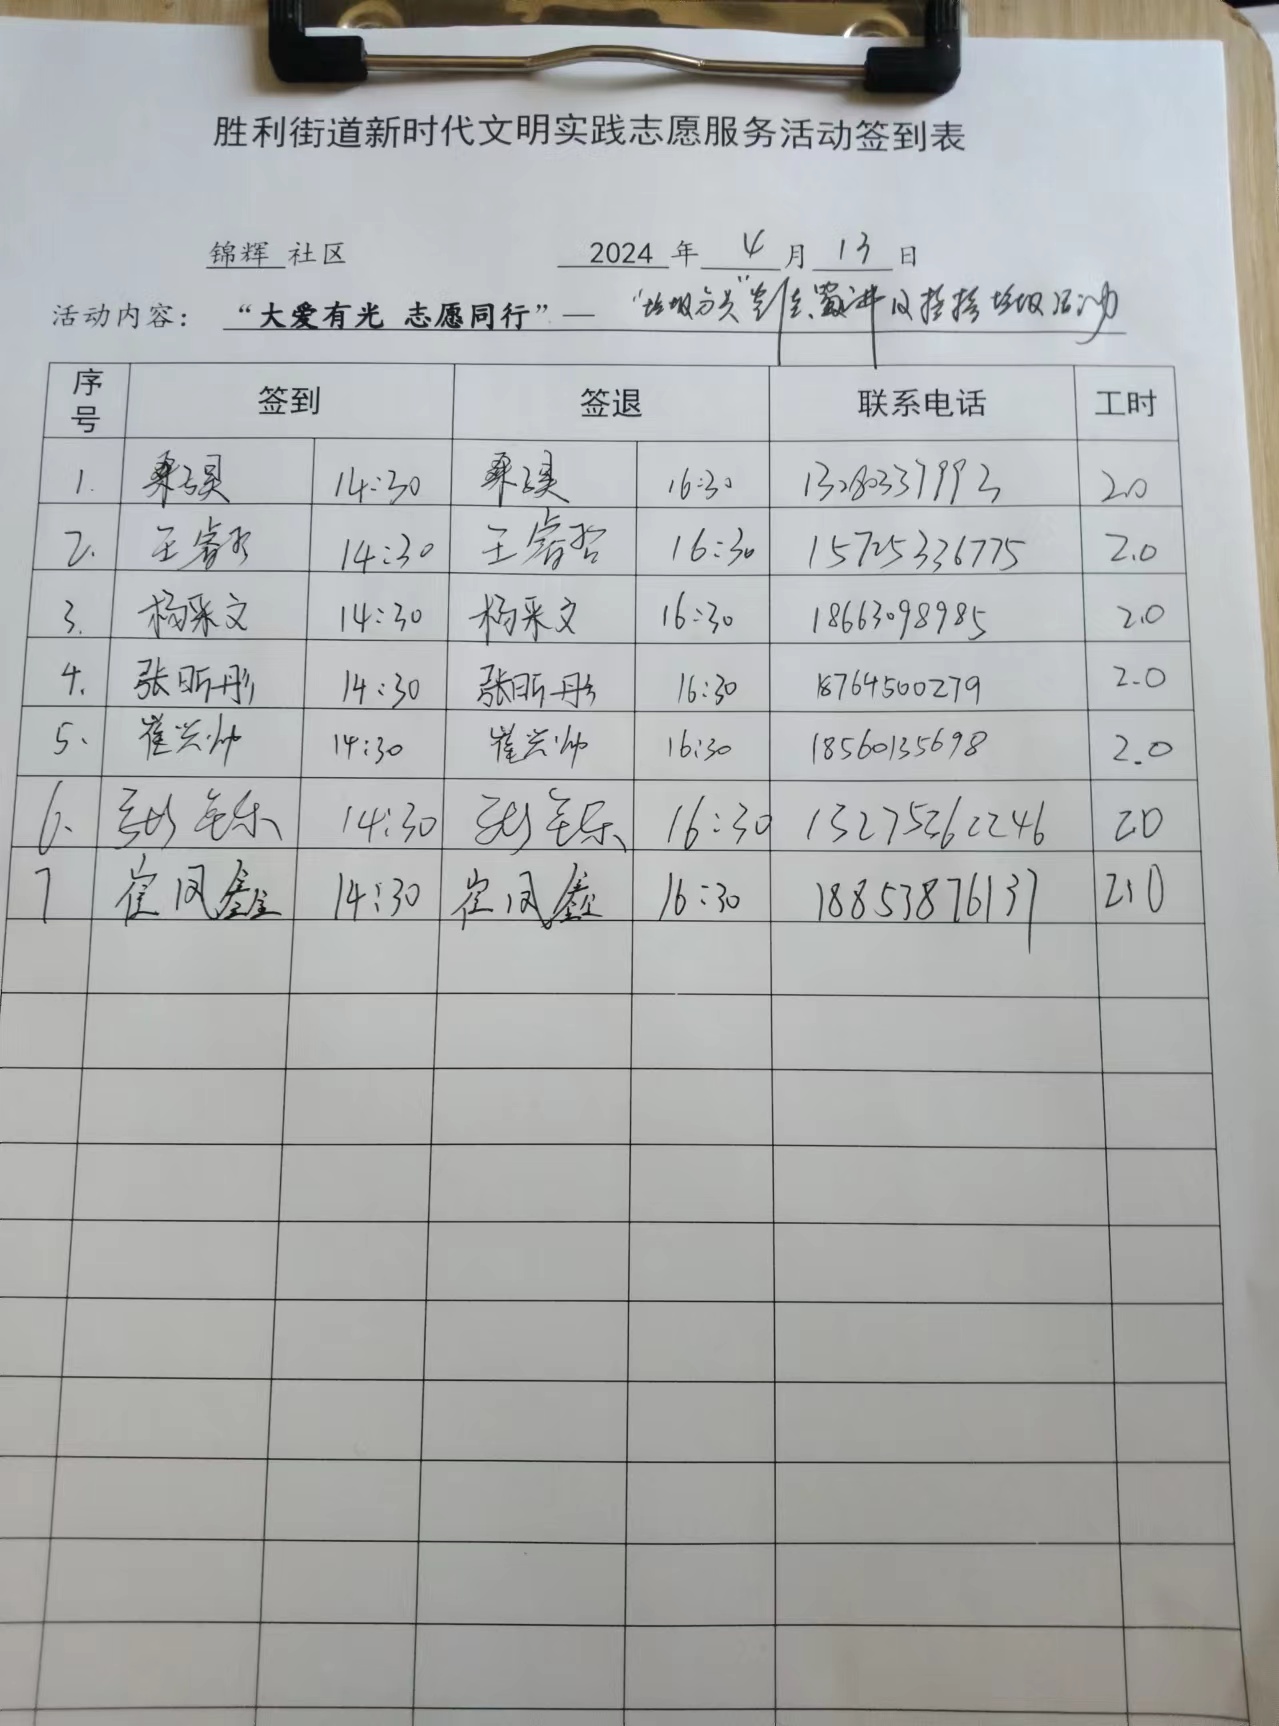 胜利街道新时代文明实践志愿服务活动签到表
锦辉 社区 2024 年 4 月 13 日
活动内容： “大爱有光 志愿同行”— “垃圾分类” 宣讲及捡拾垃圾活动
序号 签到 签退 联系电话 工时
1. 14:30 16:30 13280337993 2.0
2. 王睿哲 14:30 王睿哲 16:30 15725336775 2.0
3. 杨采文 14:30 杨采文 16:30 18663098985 2.0
4. 张昕彤 14:30 张昕彤 16:30 18764500279 2.0
5. 崔兴帅 14:30 崔兴帅 16:30 18560135698 2.0
6. 14:30 16:30 13275362246 2.0
7 崔凤鑫 14:30 崔凤鑫 16:30 18853876137 2.0